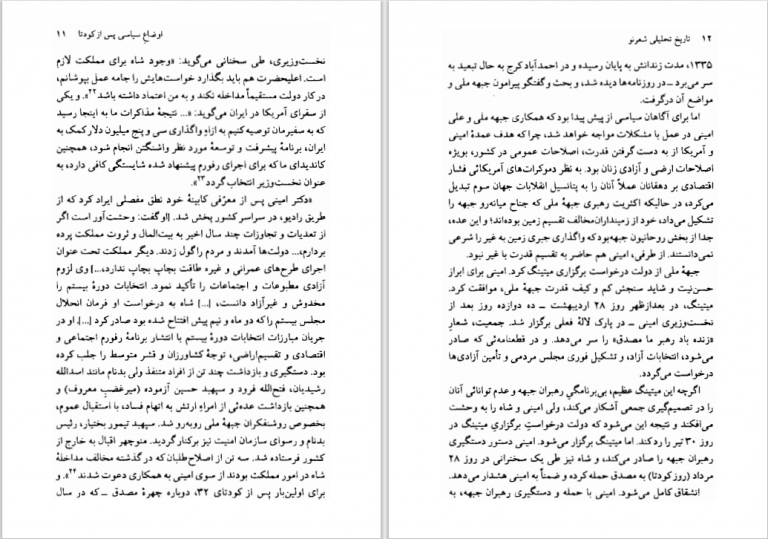 اوضاع سیاسی پس از کودتا ۱۱
نخست‌وزیری، طی سخنانی می‌گوید: «وجود شاه برای مملکت لازم
است. اعلیحضرت هم باید بگذارد خواست‌هایش را جامه عمل بپوشانم،
در کار دولت مستقیماً مداخله نکند و به من اعتماد داشته باشد»۲۲. و یکی
از سفرای آمریکا در ایران می‌گوید: «... نتیجهٔ مذاکرات ما به اینجا رسید
که به سفیرمان توصیه کنیم به ازاءِ واگذاری سی و پنج میلیون دلار کمک به
ایران، برنامهٔ پیشرفت و توسعهٔ مورد نظر واشنگتن انجام شود، همچنین
کاندیدای ما که برای اجرای رفورم پیشنهاد شده شایستگی کافی دارد، به
عنوان نخست‌وزیر انتخاب گردد»۲۳.
«دکتر امینی پس از معرّفی کابینهٔ خود نطق مفصلی ایراد کرد که از
طریق رادیو، در سراسر کشور پخش شد. [او گفت: وحشت‌آور است اگر
از تعدیات و تجاوزات چند سال اخیر به بیت‌المال و ثروت مملکت پرده
بردارم،.. دولت‌ها آمدند و مردم را گول زدند. دیگر مملکت تحت عنوان
اجرای طرح‌های عمرانی و غیره طاقت بچاپ بچاپ ندارد،...] وی لزوم
آزادی مطبوعات و اجتماعات را تأکید نمود. انتخابات دورهٔ بیستم را
مخدوش و غیرآزاد دانست، [...] شاه به درخواست او فرمان انحلال
مجلس بیستم را که دو ماه و نیم پیش افتتاح شده بود صادر کرد [...]. او در
جریان مبارزات انتخابات دورهٔ بیستم با انتشار برنامهٔ رفورم اجتماعی و
اقتصادی و تقسیم‌اراضی، توجهٔ کشاورزان و قشر متوسط را جلب کرده
بود. دستگیری و بازداشت چند تن از افراد متنفذ ولی بدنام مانند اسدالله
رشیدیان، فتح‌الله فرود و سپهبد حسین آزموده (میرغضبِ معروف) و
همچنین بازداشت عده‌ئی از امراءِ ارتش به اتهام فساد، با استقبال عموم،
بخصوص روشنفکران جبههٔ ملی روبه‌رو شد. سپهبد تیمور بختیار، رئیس
بدنام و رسوای سازمان امنیت نیز برکنار گردید. منوچهر اقبال به خارج از
کشور فرستاده شد. سه تن از اصلاح‌طلبان که در گذشته مخالف مداخلهٔ
شاه در امور مملکت بودند از سوی امینی به همکاری دعوت شدند»۲۴. و
برای اولین‌بار پس از کودتای ۳۲، دوباره چهرهٔ مصدق ــ که در سال
۱۲ تاریخ تحلیلی شعر نو
۱۳۳۵، مدت زندانش به پایان رسیده و در احمدآباد کرج به حال تبعید به
سر می‌برد ــ در روزنامه‌ها دیده شد، و بحث و گفتگو پیرامون جبههٔ ملی و
مواضع آن درگرفت.
اما برای آگاهان سیاسی از پیش پیدا بود که همکاری جبههٔ ملی و علی
امینی در عمل با مشکلات مواجه خواهد شد، چرا که هدف عمدهٔ امینی
و آمریکا از به دست گرفتن قدرت، اصلاحات عمومی در کشور، بویژه
اصلاحات ارضی و آزادی زنان بود. به نظر دموکرات‌های آمریکائی فشار
اقتصادی بر دهقانان عملاً آنان را به پتانسیل انقلابات جهان سوم تبدیل
می‌کرد، در حالیکه اکثریت رهبری جبههٔ ملی که جناح میانه‌رو جبهه را
تشکیل می‌داد، خود از زمینداران‌مخالف تقسیم زمین بوده‌اند؛ و این عده،
جدا از بخش روحانیون جبهه‌بود که واگذاری جبری زمین به غیر را شرعی
نمی‌دانستند. از طرفی، امینی هم حاضر به تقسیم قدرت با غیر نبود.
جبههٔ ملی از دولت درخواست برگزاری میتینگ کرد. امینی برای ابراز
حسن‌نیت و شاید سنجش کم و کیف قدرت جبههٔ ملی، موافقت کرد.
میتینگ، در بعدازظهر روز ۲۸ اردیبهشت ــ ده دوازده روز بعد از
نخست‌وزیری امینی ــ در پارک لالهٔ فعلی برگزار شد. جمعیت، شعارِ
«زنده باد رهبر ما مصدق» را سر می‌دهد. و در قطعنامه‌ئی که صادر
می‌شود، انتخابات آزاد، و تشکیل فوری مجلس مردمی و تأمین آزادی‌ها
درخواست می‌گردد.
اگرچه این میتینگ عظیم، بی‌برنامگیِ رهبران جبهه و عدم توانائی آنان
را در تصمیم‌گیری جمعی آشکار می‌کند، ولی امینی و شاه را به وحشت
می‌افکند و نتیجه این می‌شود که دولت درخواستِ برگزاریِ میتینگ در
روز ۳۰ تیر را رد کند. اما میتینگ برگزار می‌شود. امینی دستور دستگیری
رهبران جبهه را صادر می‌کند، و شاه نیز طی یک سخنرانی در روز ۲۸
مرداد (روز کودتا) به مصدق حمله کرده و ضمناً به امینی هشدار می‌دهد.
انشقاق کامل می‌شود. امینی با حمله و دستگیری رهبران جبهه، به